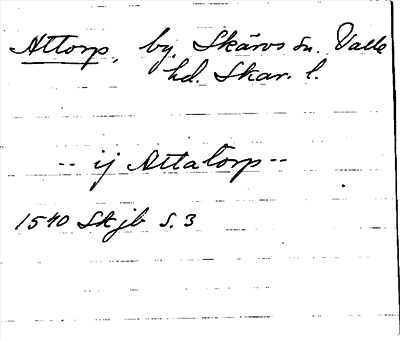 Attorp, by, Skärvs sn. Valle
hd. Skar. l.
-- ij Attatorp --
1540 Skjb s. 3